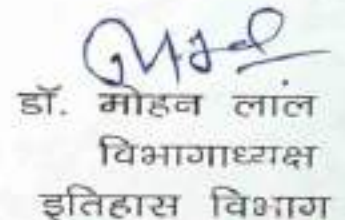 डॉ. मोहन लाल
विभागाध्यक्ष
इतिहास विभाग